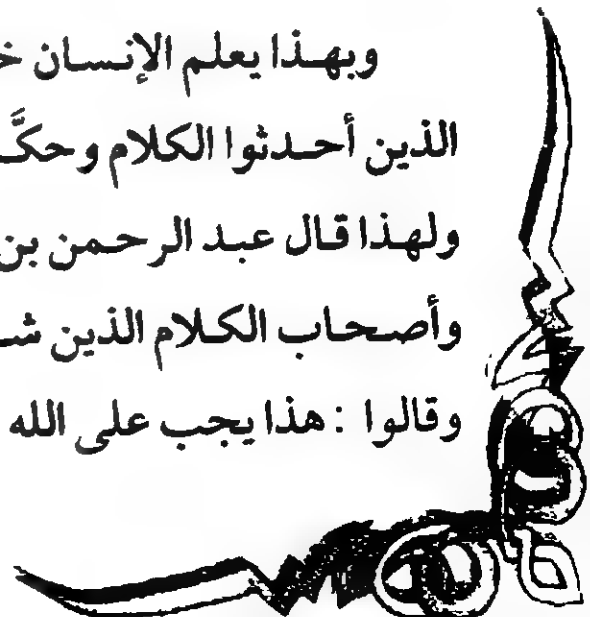 وبهذا يعلم الإنسان
الذين أحدثوا الكلام وحكَّـ
ولهذا قال عبد الرحمن بن
وأصحاب الكلام الذين شـ
وقالوا : هذا يجب على الله